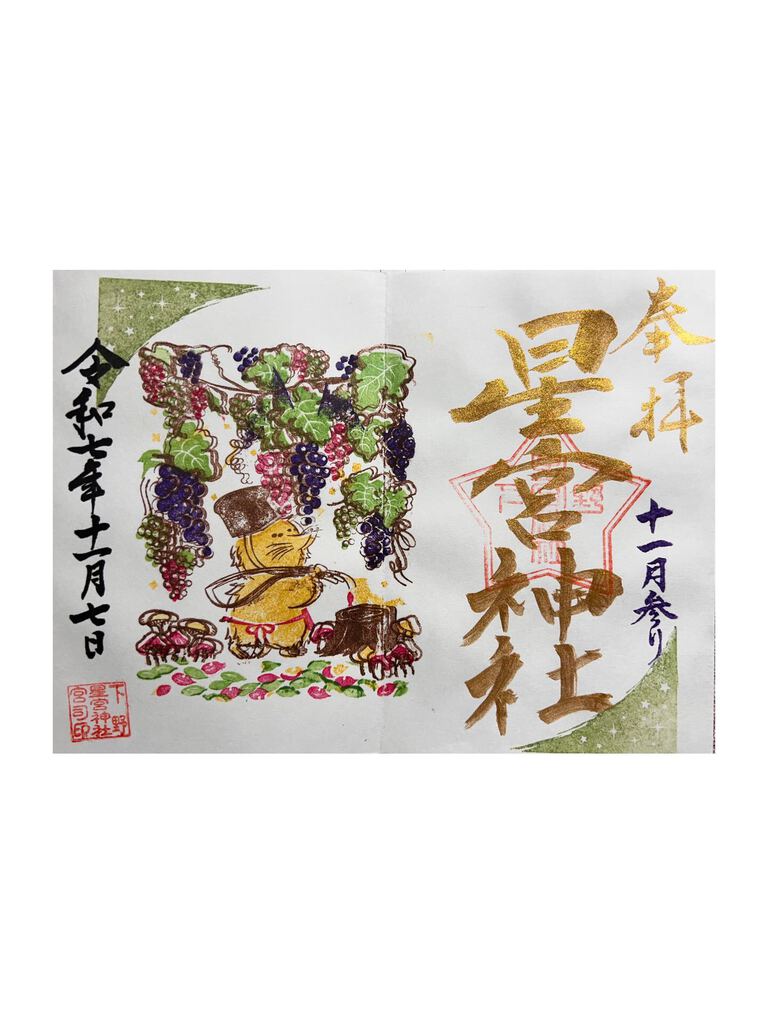 奉拝
十一月参り
星宮神社
下野
令和七年十一月七日
下野
星宮神社
宮司印